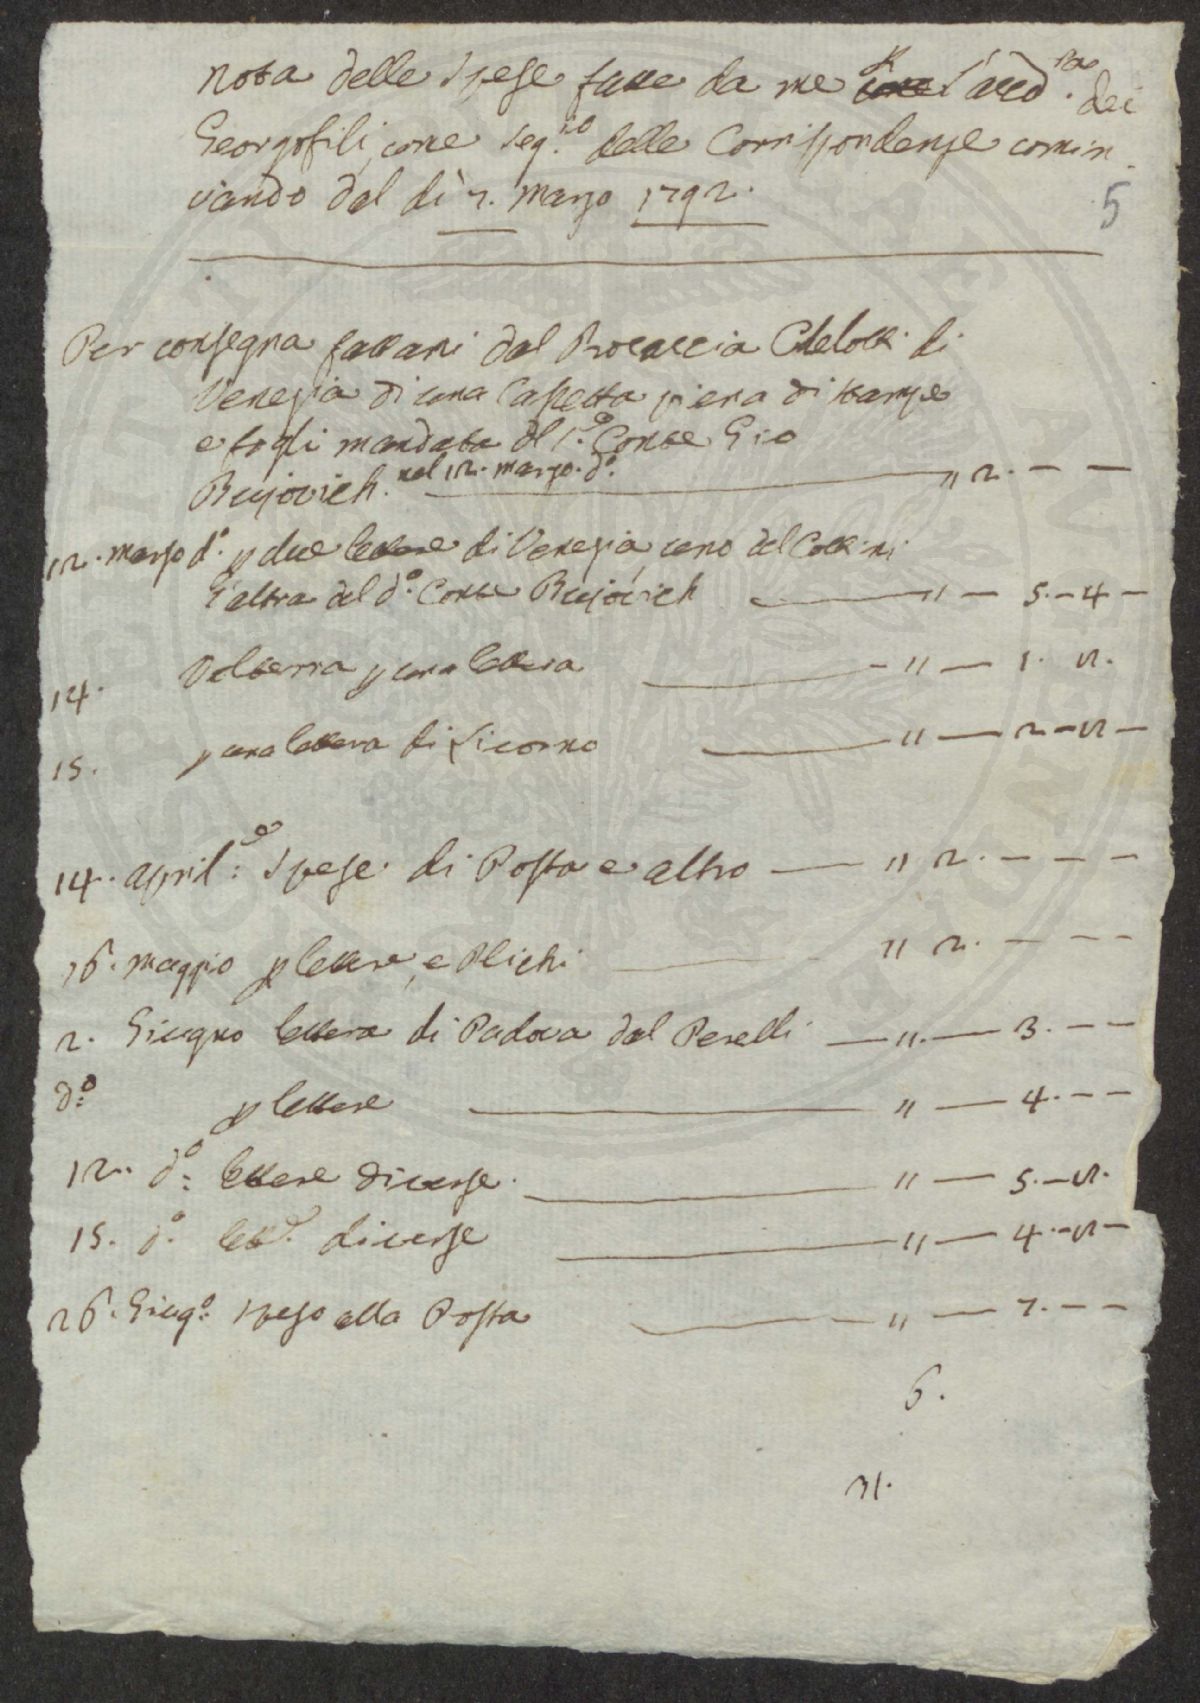 Nota delle Spese fatte da me p l'Accad. dei
Georgofili, come Seg.rio delle Corrispondenze comin
ciando dal dì 7. Marzo 1792.
5
Per consegna fattami dal Procaccia Chelotti di
Venezia di una Cassetta piena di stampe
e fogli mandata dal S.e Conte Gio
Bujovich. nel 12. marzo. d.o " 2. — —
12. marzo d.o p due lettere di Venezia, uno del Cottini
l'altra del d.o Conte Bujovich " — 5. — 4 —
14. Volterra p una lettera — " — 1. 2.
15. p una lettera di Livorno " — 2 — 2 —
14. April.e: Spese di Posta e altro — " 2. — — —
16. Maggio p lettere, e Plichi " 2. — — —
2. Giugno lettera di Padova dal Perelli — " — 3. — —
d.o p lettere " — 4. — —
12. d.o: lettere diverse. " — 5. — 2.
15. d.o. lett.e diverse " — 4. — 2 —
26. Giug.o: speso alla Posta " — 7. — —
6.
31.